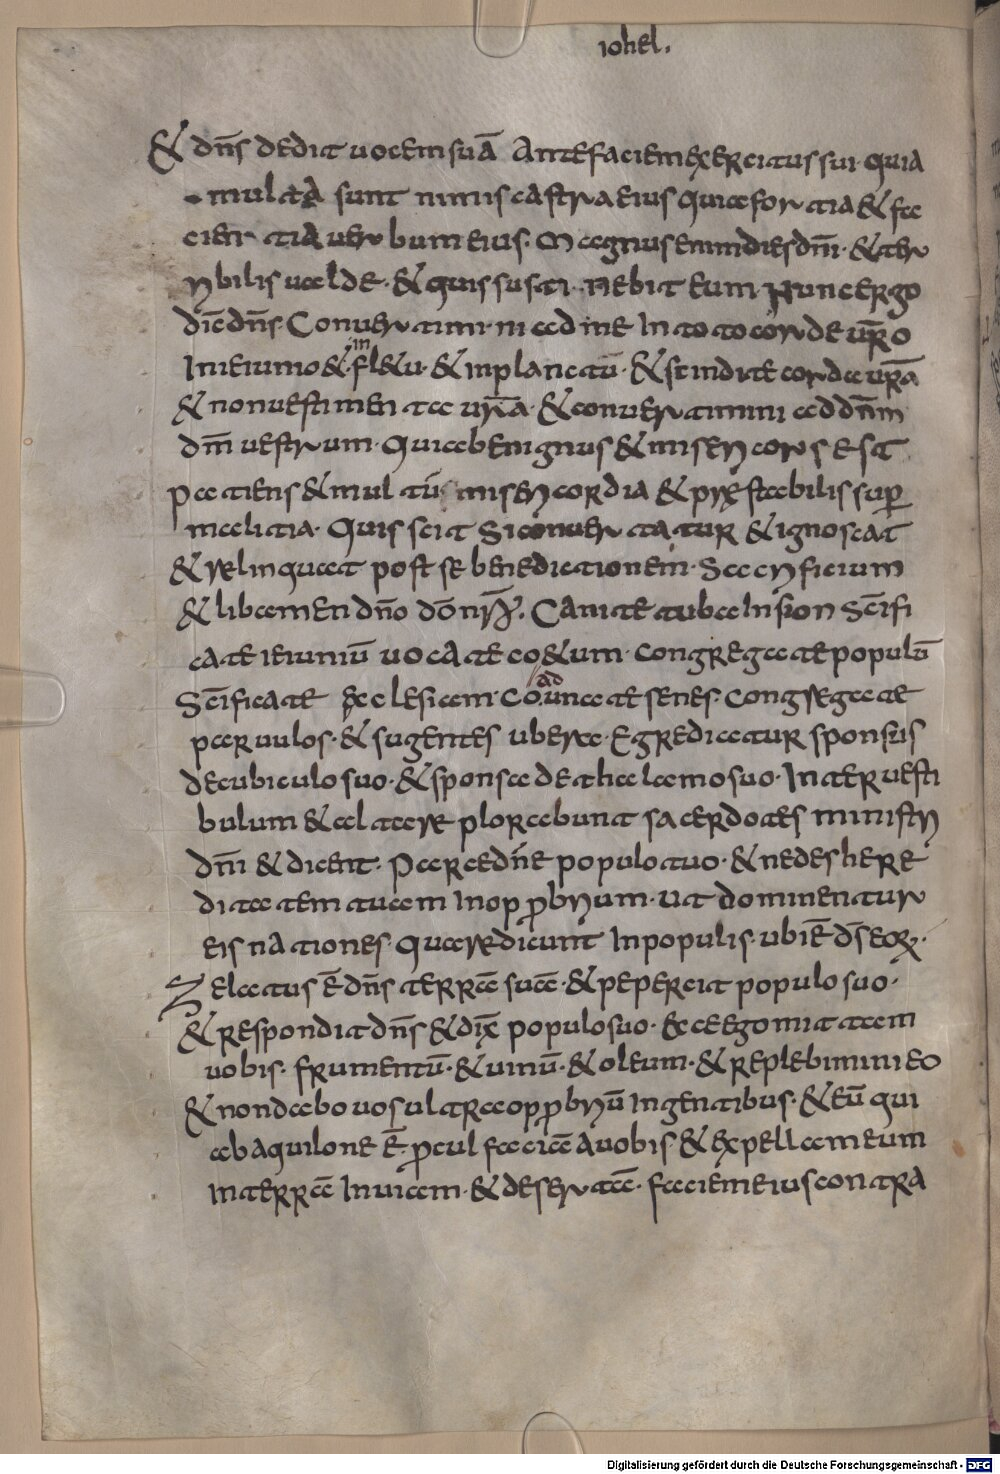 iohel.
& dn̄s dedit uocem suā Ante faciem exercitus sui · quia
multa sunt nimis castra eius quia fortia & fa
cientia uerbum eius · Magnus enim dies dn̄i · & ter
ribilis ualde · & quis susti nebit eum Nunc ergo
dic̄ dn̄s · Conuertimini ad me In toto corde ur̄o
In ieiunio & in fletu · & in planctū · & scindite corda ur̄a
& non uestimenta ur̄a · & conuertimini ad dn̄m
dm̄ uestrum · Quia benignus & misericors est
Patiens & multū misericordia & prȩstabilis sup̱
malitia · Quis scit Si conuertatur & ignoscat
& relinquat post se benedictionem · Sacrificium
& libamen dn̄o dō nr̄o · Canite tuba In sion Sc̄ifi
cate ieiuniū uocate coetum · congregate populū
Sc̄ificate ȩclesiam · Coadunate senes · Congregate
paruulos · & sugentes ubera · Egrediatur sponsus
de cubiculo suo · & sponsa de thalamo suo · Inter uesti
bulum & altare plorabunt sacerdotes ministri
dn̄i & dicent · Parce dn̄e populo tuo · & ne des here
ditatem tuam In opp̱brium · ut dominentur
eis nationes · Quare dicunt In populis · ubi ē ds̄ eoꝝ ·
Zelatus ē dn̄s terrā suā · & pepercit populo suo ·
& respondit dn̄s & dix̄ populo suo · Ecce ego mittam
uobis · frumentū · & uinū · & oleum · & replebimini eo
& non dabo uos ultra opp̱briū In gentibus · & eū qui
ab aquilone ē p̱cul faciā A uobis & expellam eum
In terrā Inuiam · & desertā · faciem eius contra
Digitalisierung gefördert durch die Deutsche Forschungsgemeinschaft - DFG